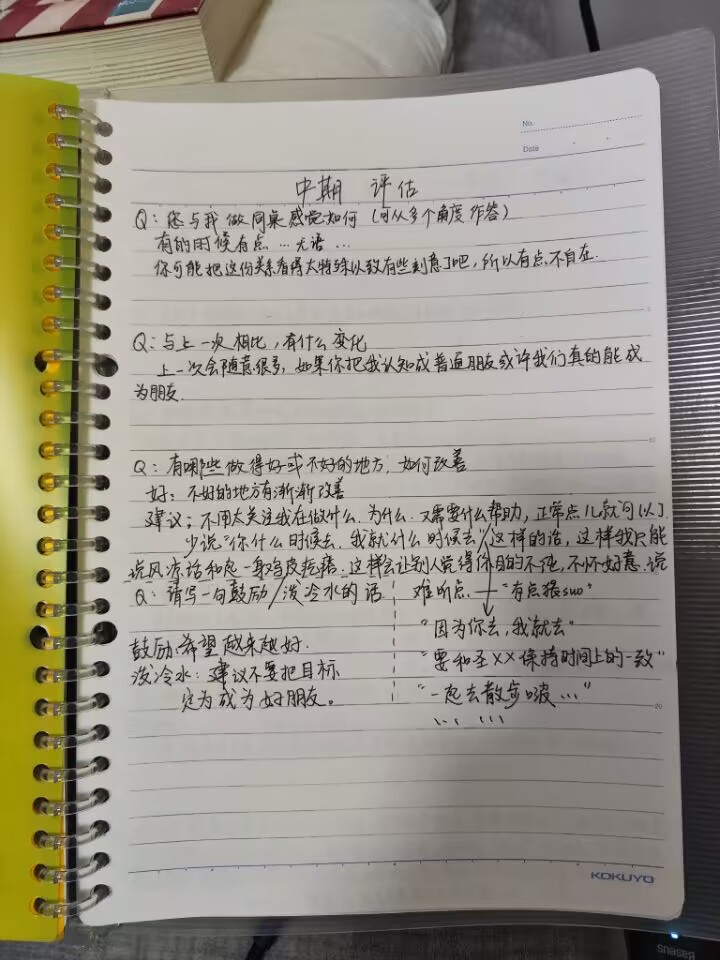 No.
Date
中期 评估
Q: 您与我做同桌感觉如何(可从多个角度作答)
有的时候有点…无语…
你可能把这份关系看得太特殊以致有些刻意了吧,所以有点不自在.
Q:与上一次相比,有什么变化
上一次会随意很多,如果你把我认知成普通朋友或许我们真的能成
为朋友.
Q:有哪些做得好或不好的地方,如何改善
好:不好的地方有渐渐改善
建议;不用太关注我在做什么.为什么.又需要什么帮助,正常点儿就可以了
少说"你什么时候去.我就什么时候去"这样的话,这样我只能
说风凉话和起一身鸡皮疙瘩.这样会让别人觉得你目的不纯,不怀好意.说
Q:请写一句鼓励/泼冷水的话
难听点.—"有点猥suo"
"因为你去,我就去"
鼓励:希望越来越好.
"要和圣XX保持时间上的一致"
泼冷水:建议不要把目标
定为成为好朋友。
"一起去散步啵…"
20
KOKUYO
Baseus